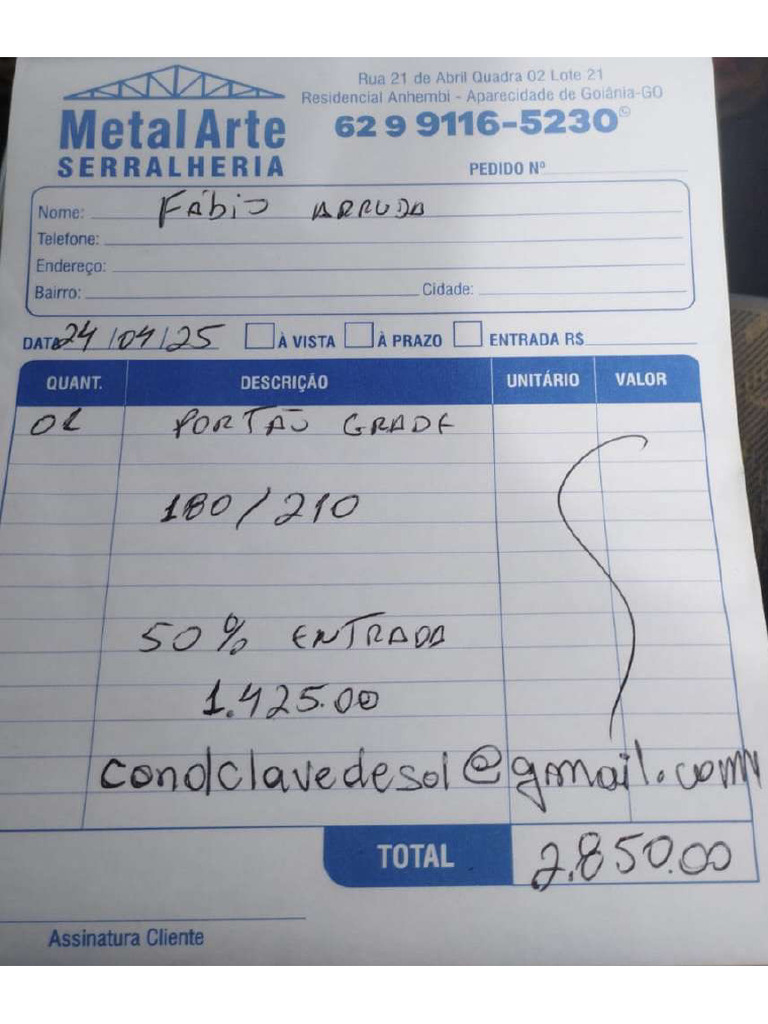 Rua 21 de Abril Quadra 02 Lote 21
Residencial Anhembi - Aparecidade de Goiânia-GO
62 9 9116-5230
Metal Arte
SERRALHERIA
PEDIDO Nº
Nome: FÁBIO ARRUDA
Telefone:
Endereço:
Bairro: Cidade:
DATA 24/04/25 À VISTA À PRAZO ENTRADA R$
QUANT. DESCRIÇÃO UNITÁRIO VALOR
01 PORTÃO GRADE
180/210
50% ENTRADA
1.425.00
condclavedesol@gmail.com
TOTAL 2.850.00
Assinatura Cliente